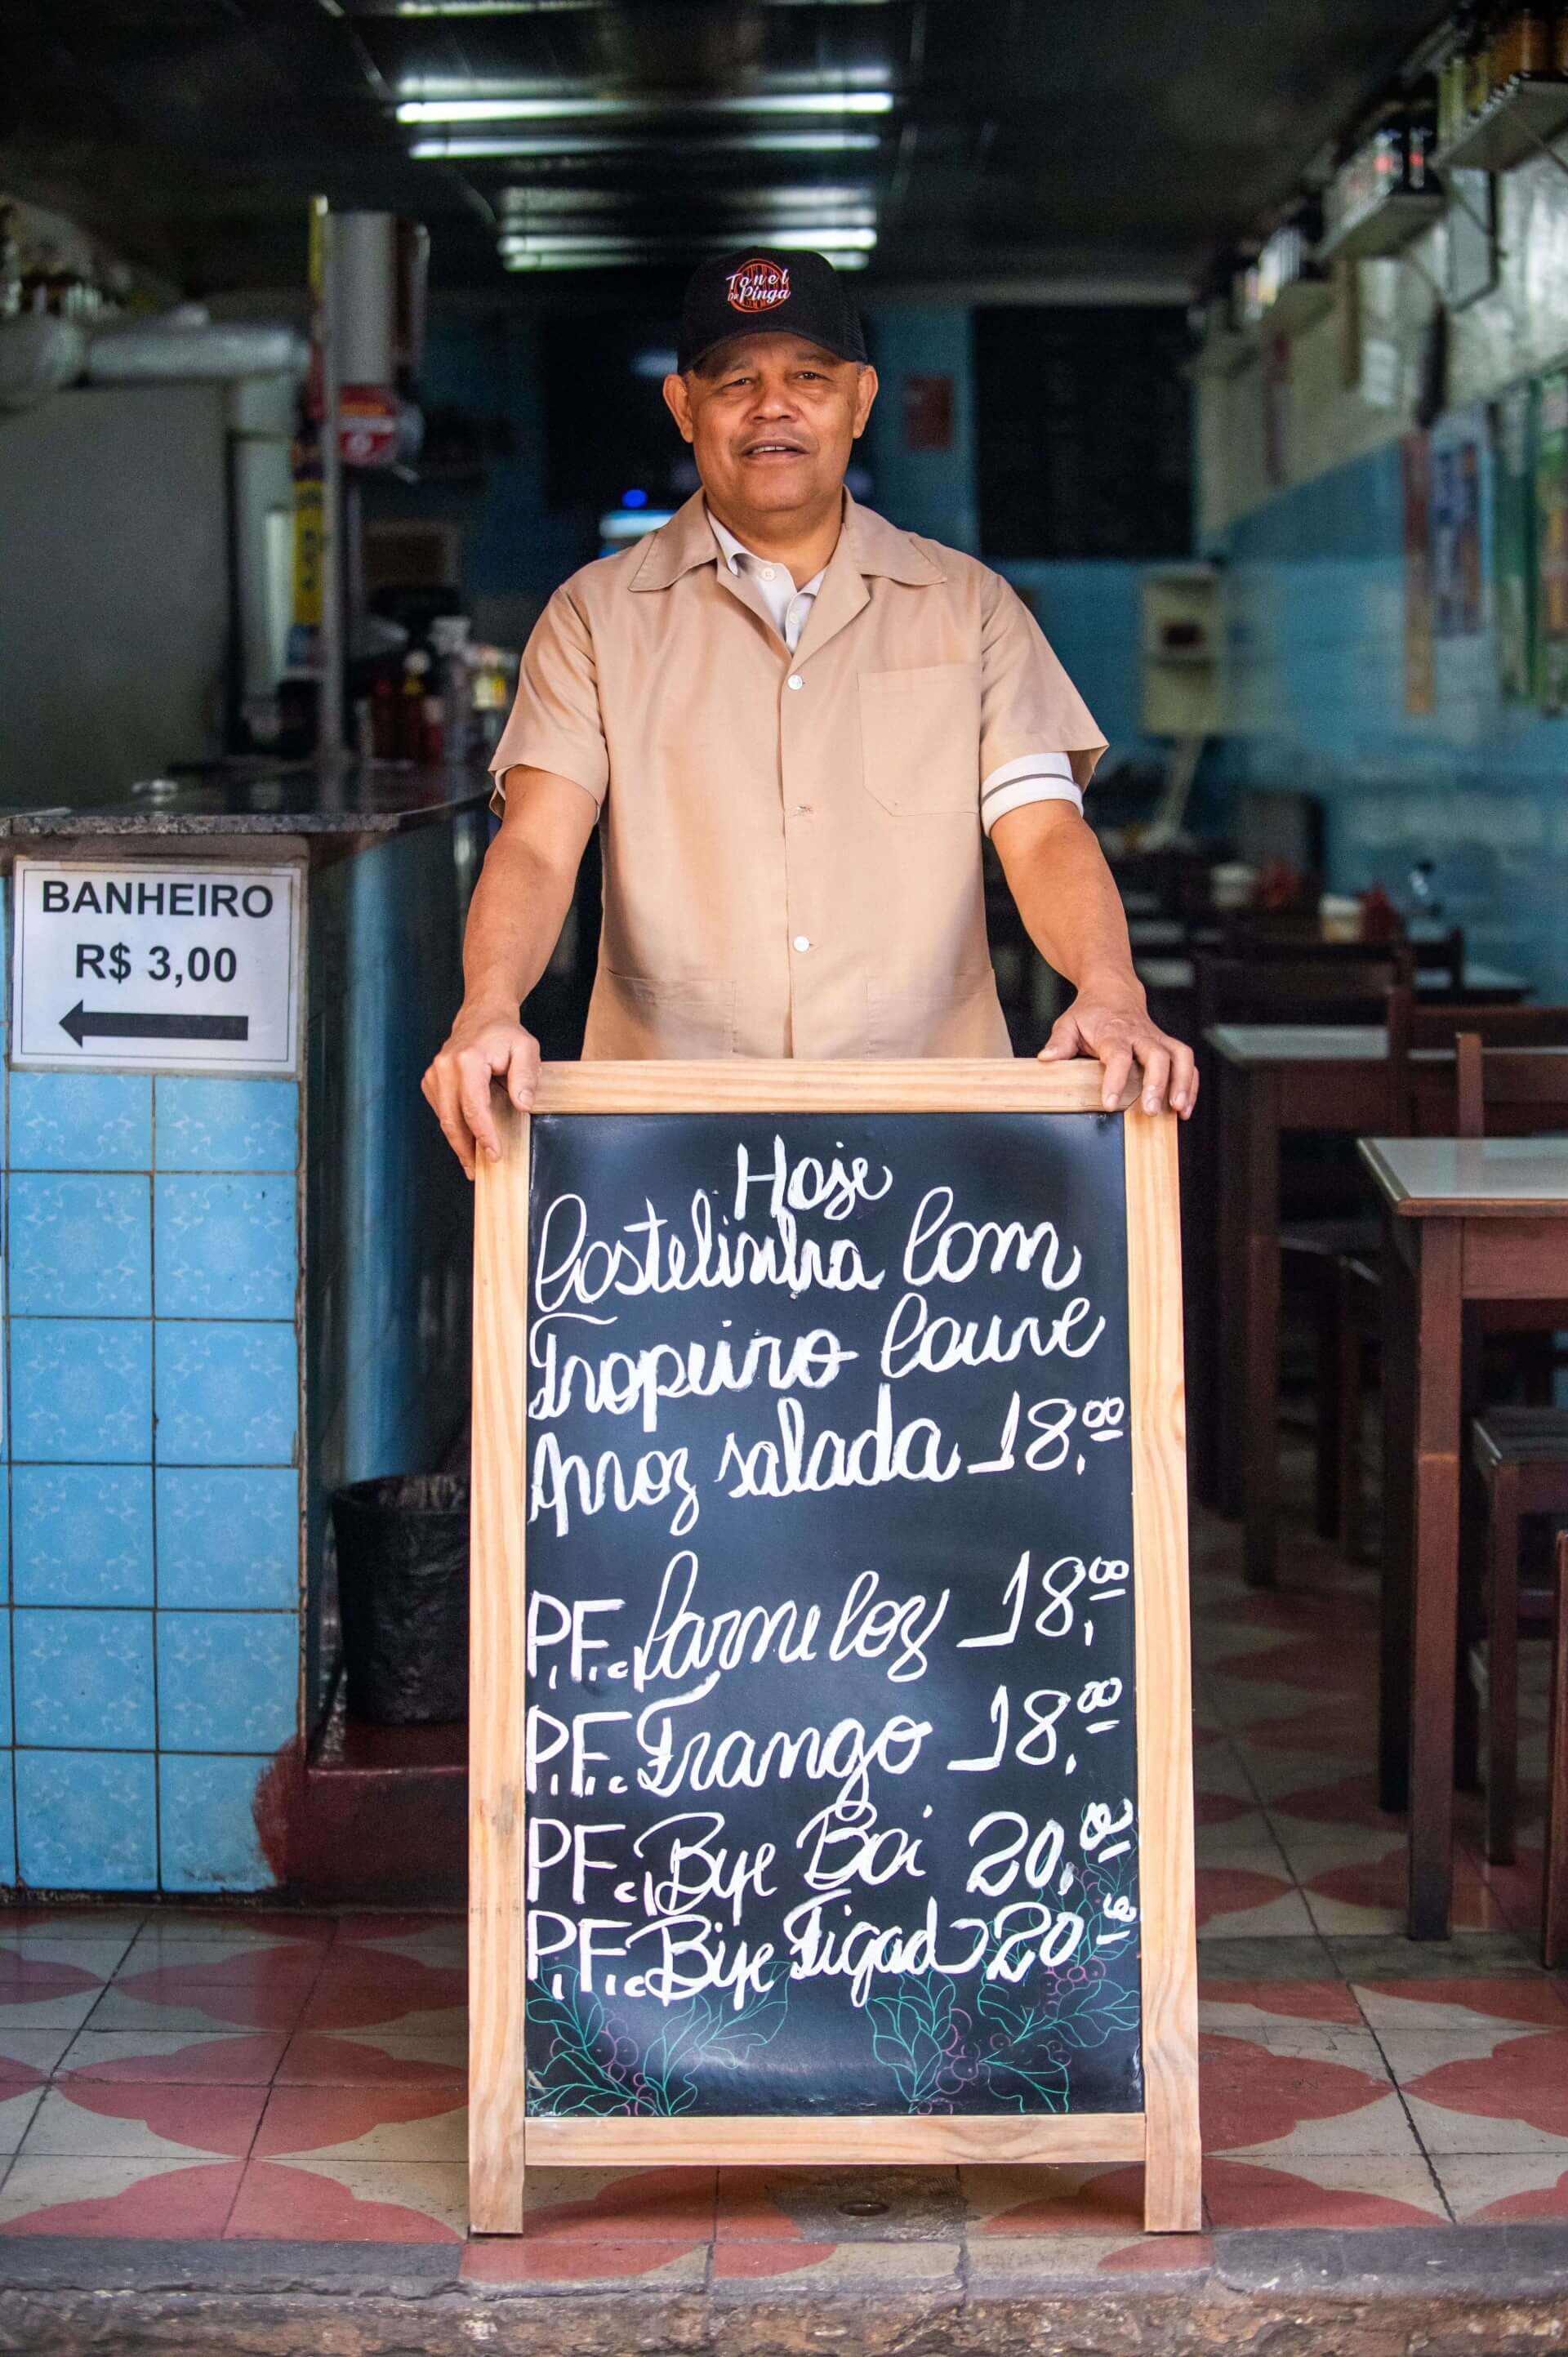 Tonel
De Pinga
BANHEIRO
R$ 3,00
Hoje
Costelinha Com
Tropeiro Couve
Arroz salada 18,00
P.F. c/ Carne Coz 18,00
P.F. c Frango 18,00
PF. c/ Bife Boi 20,00
P.F. c Bife Figad 20,00